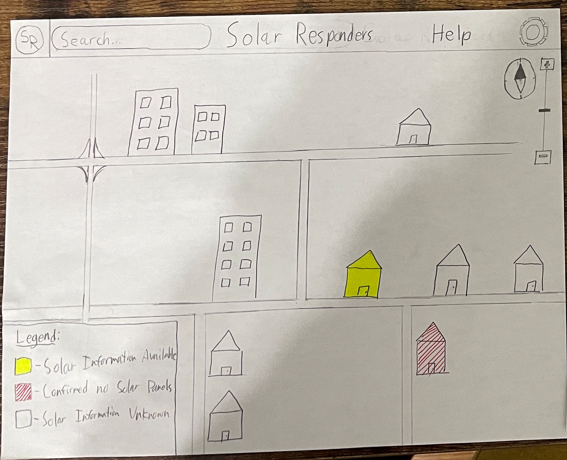 SR Search... Solar Responders Help
+
-
Legend:
- Solar Information Available
- Confirmed no Solar Panels
- Solar Information Unknown